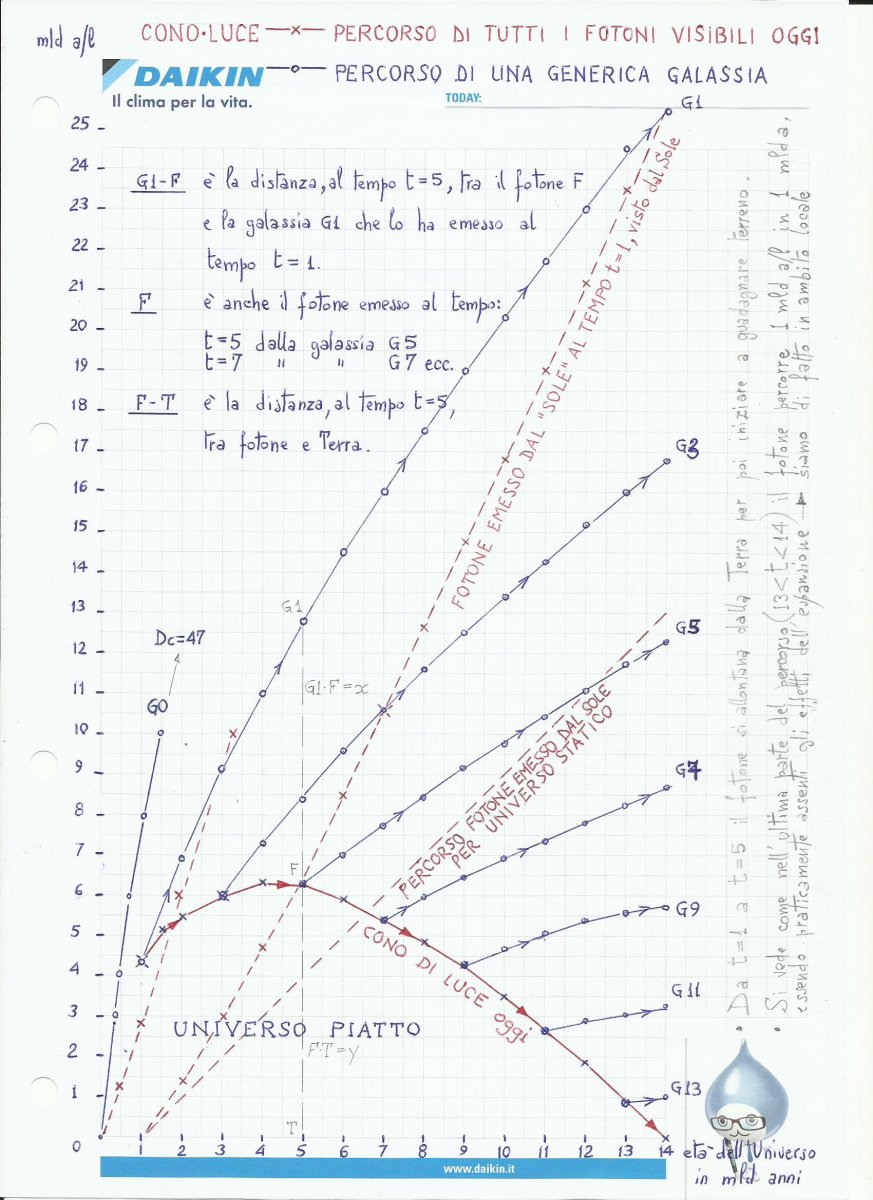 mld a/l
CONO·LUCE —x— PERCORSO DI TUTTI I FOTONI VISIBILI OGGI
DAIKIN
—o— PERCORSO DI UNA GENERICA GALASSIA
Il clima per la vita.
TODAY:
G1
25
24
23
22
21
20
19
18
17
16
15
14
13
12
11
10
9
8
7
6
5
4
3
2
1
0
G1-F è la distanza, al tempo t=5, tra il fotone F
e la galassia G1 che lo ha emesso al
tempo t=1.
F è anche il fotone emesso al tempo:
t=5 dalla galassia G5
t=7 " " G7 ecc.
F-T è la distanza, al tempo t=5,
tra fotone e Terra.
FOTONE EMESSO DAL "SOLE" AL TEMPO t=1, visto dal Sole
G3
G1
Dc=47
G0
G1·F=x
G5
PERCORSO FOTONE EMESSO DAL SOLE
PER UNIVERSO STATICO
G7
F
G9
CONO DI LUCE oggi
G11
UNIVERSO PIATTO
F·T=y
G13
T
1 2 3 4 5 6 7 8 9 10 11 12 13 14
età dell'Universo
in mld anni
www.daikin.it
• Da t=1 a t=5 il fotone si allontana dalla Terra per poi iniziare a guadagnare terreno.
• Si vede come nell'ultima parte del percorso (13<t<14) il fotone percorre 1 mld a/l in 1 mlda,
essendo praticamente assenti gli effetti dell'espansione → siamo di fatto in ambito locale